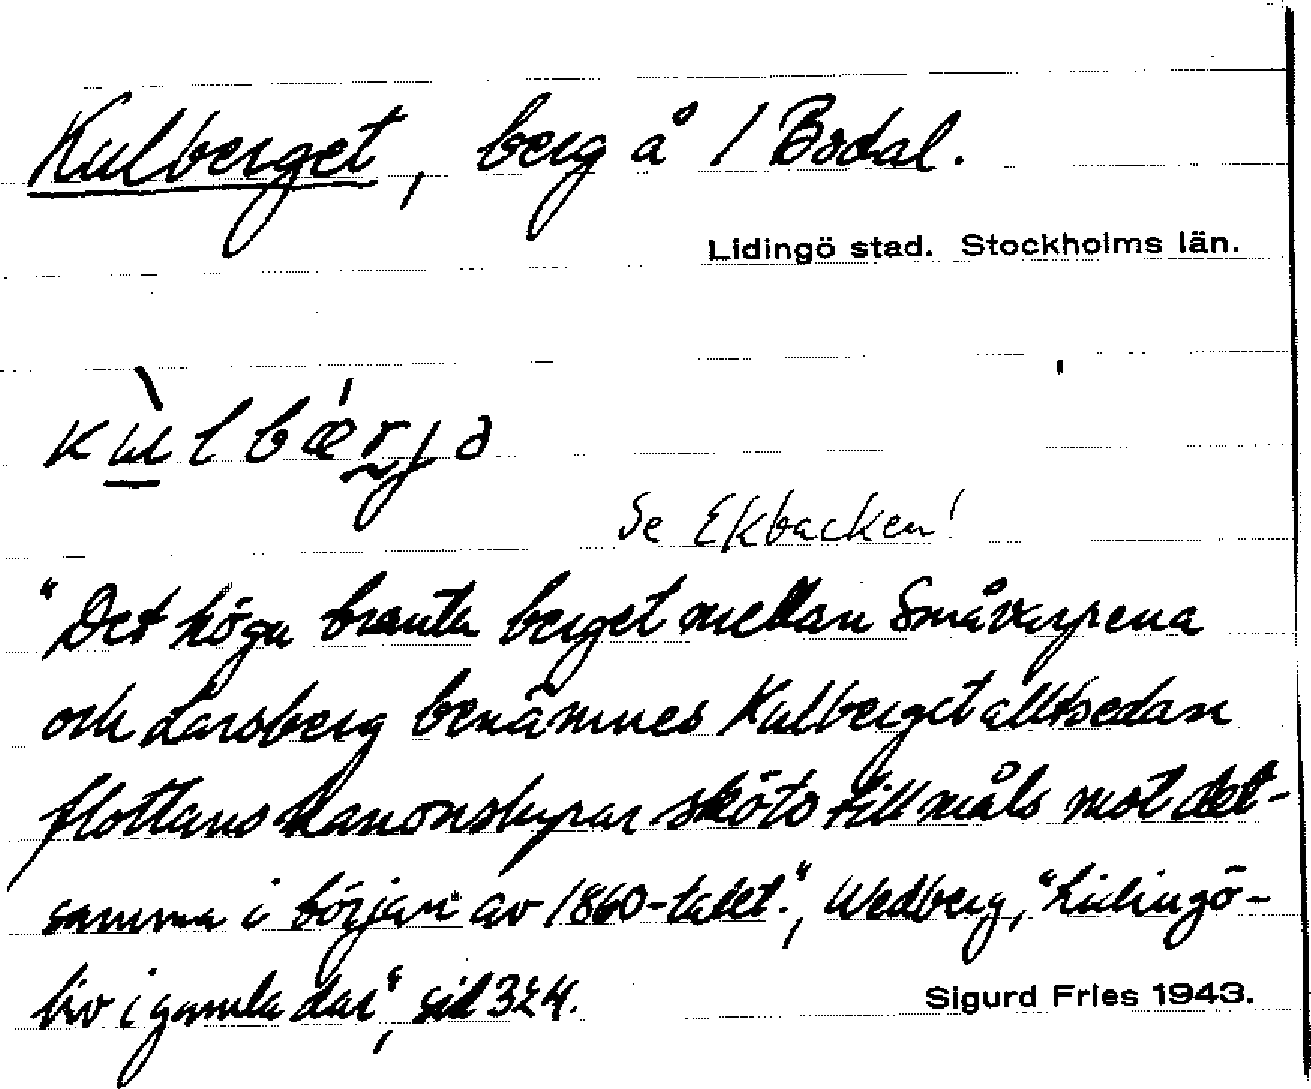 Kulberget, berg å 1 Bodal.
Lidingö stad. Stockholms län.
kùlbǽrjə
Se Ekbacken!
"Det höga branta berget mellan Småvarpena
och Larsberg benämnes Kulberget alltsedan
flottans kanonskyrar sköto till måls mot det-
samma i början av 1860-talet.", Wedberg, "Lidingö-
liv i gamla dar", sid 324.
Sigurd Fries 1943.